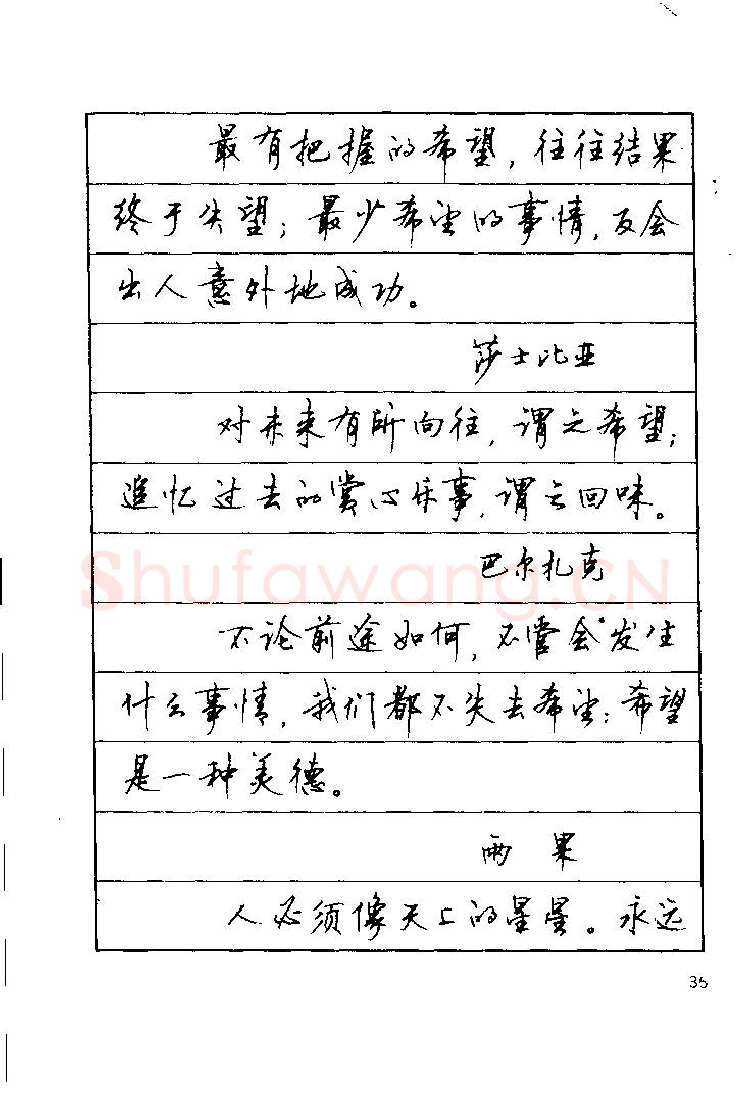 最有把握的希望，往往结果
终于失望；最少希望的事情，反会
出人意外地成功。
莎士比亚
对未来有所向往，谓之希望；
追忆过去的赏心乐事，谓之回味。
巴尔扎克
Shufawang.CN
不论前途如何，不管会发生
什么事情，我们都不失去希望：希望
是一种美德。
雨果
人必须像天上的星星。永远
35